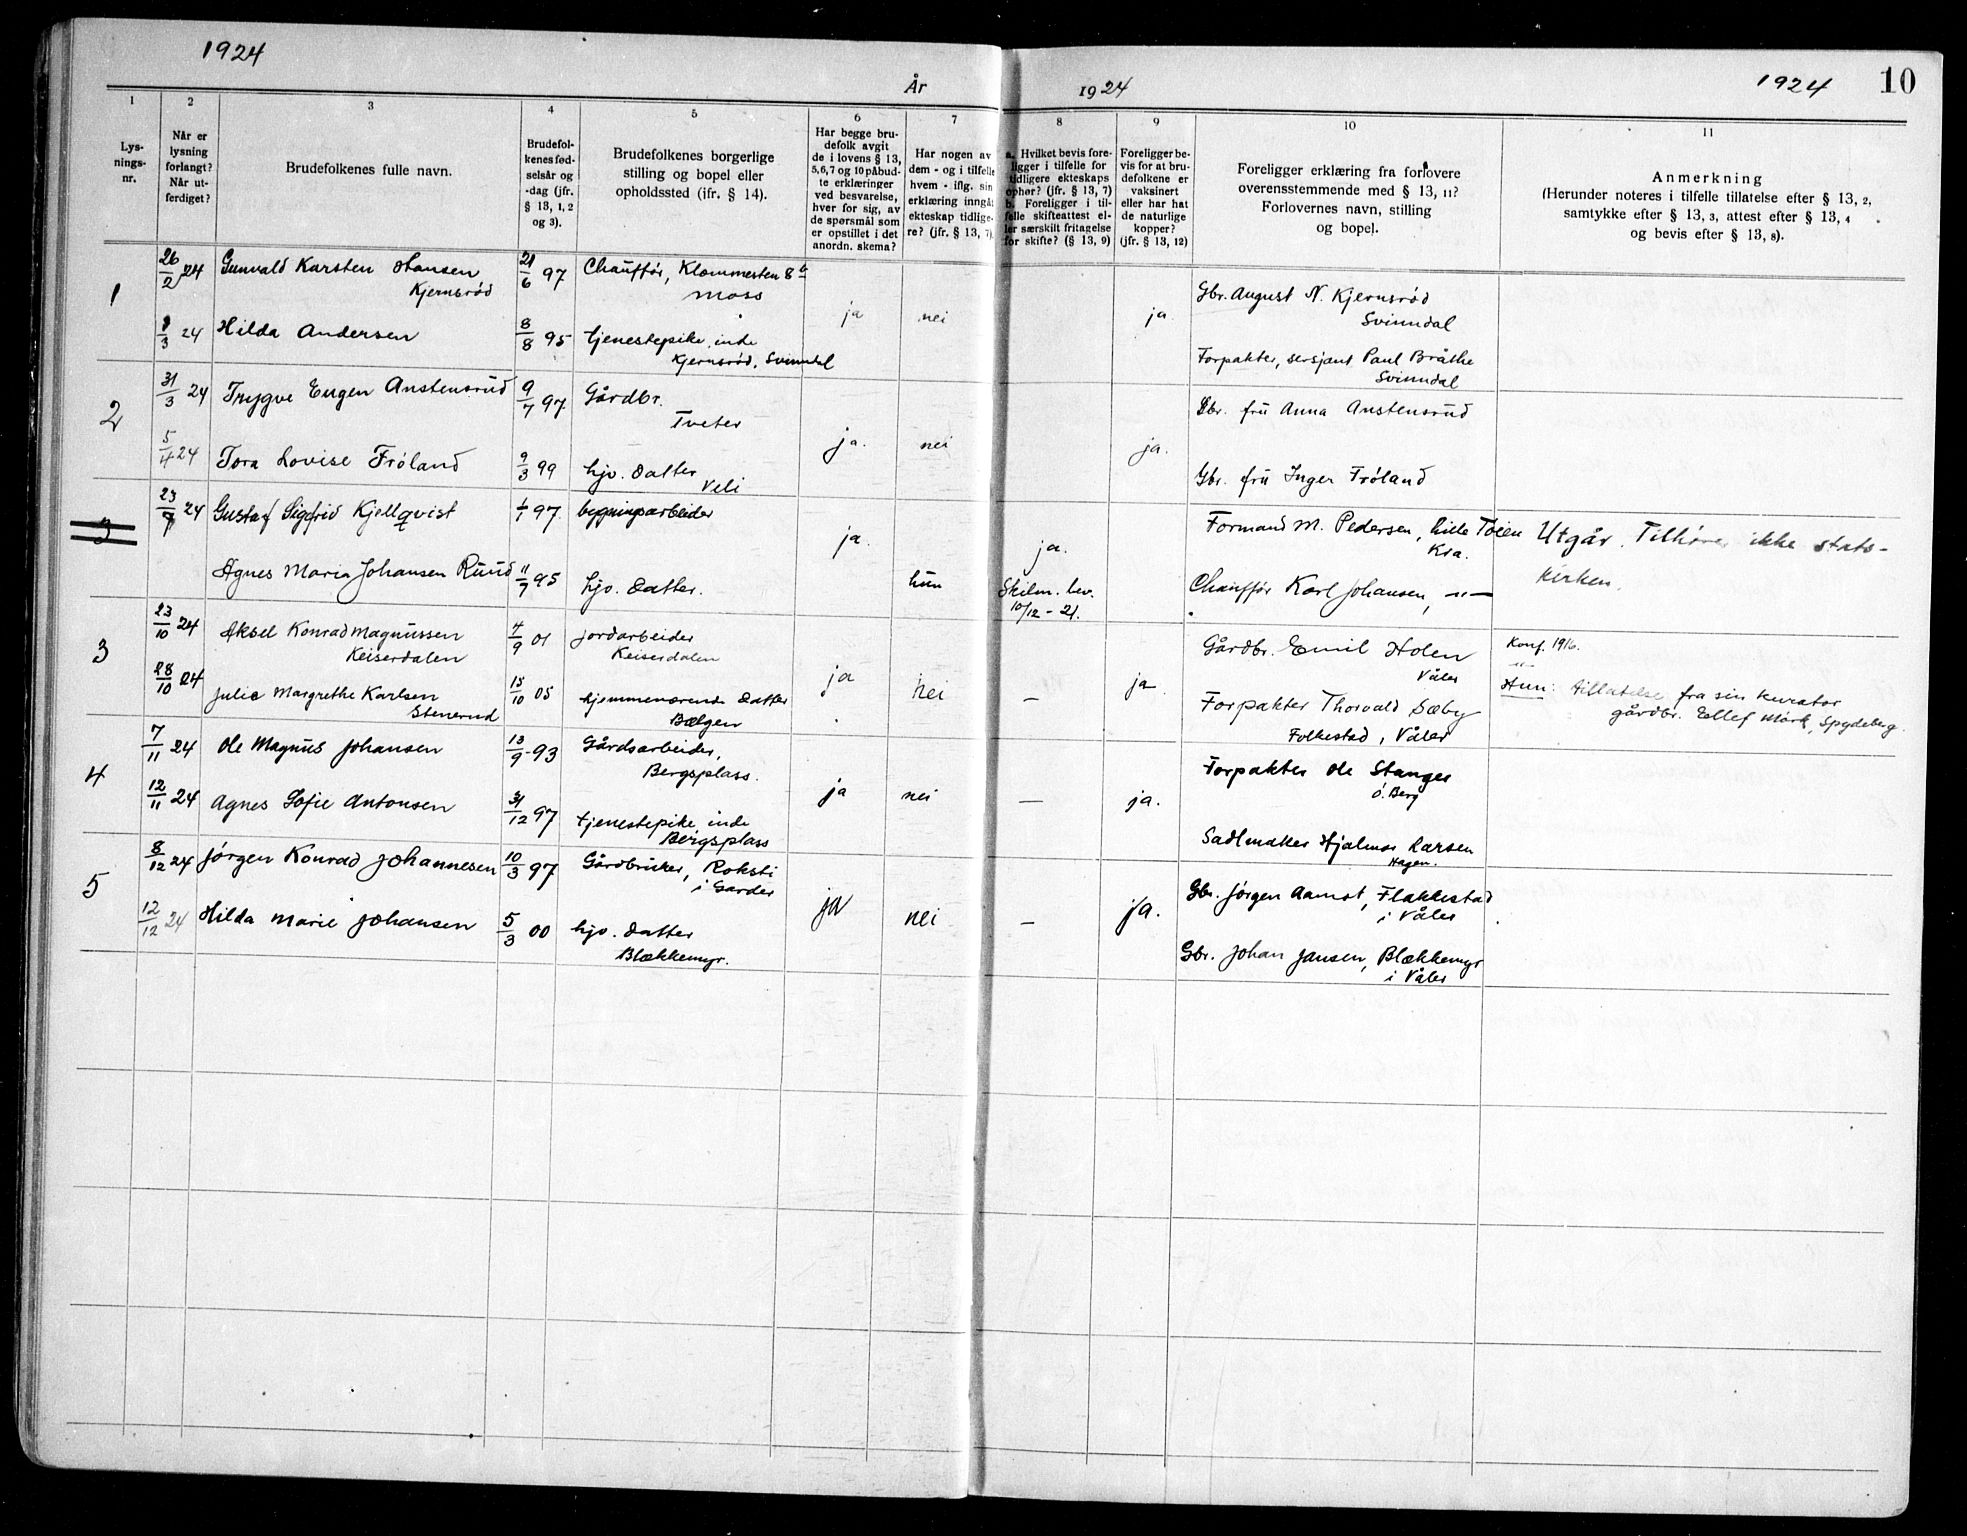 1924
År
1924
1924
10
1
2
3
4
5
6
7
8
9
10
11
Lys-
nings-
nr.
Når er
lysning
forlangt?
Når ut-
ferdiget?
Brudefolkenes fulle navn.
Brudefol-
kenes fød-
selsår og
-dag (jfr.
§ 13, 1, 2
og 3).
Brudefolkenes borgerlige
stilling og bopel eller
opholdssted (ifr. § 14).
Har begge bru-
defolk avgit
de i lovens § 13,
5, 6, 7 og 10 påbud-
te erklæringer
ved besvarelse,
hver for sig, av
de spørsmål som
er opstillet i det
anordn. skema?
Har nogen av
dem - og i tilfelle
hvem - iflg. sin
erklæring inngåt
ekteskap tidlige-
re? (jfr. § 13, 7)
a. Hvilket bevis fore-
ligger i tilfelle for
tidligere ekteskaps
ophør? (jfr. § 13, 7)
b. Foreligger i til-
felle skifteattest el-
ler særskilt fritagelse
for skifte? (§ 13, 9)
Foreligger be-
vis for at bru-
defolkene er
vaksinert
eller har hat
de naturlige
kopper?
(jfr. § 13, 12)
Foreligger erklæring fra forlovere
overensstemmende med § 13, 11?
Forlovernes navn, stilling
og bopel.
Anmerkning
(Herunder noteres i tilfelle tillatelse efter § 13, 2,
samtykke efter § 13, 3, attest efter § 13, 4
og bevis efter § 13, 8).
1
26/2 24
Gunvald Karsten Hansen
Kjernsrød
21/6 97
Chauffør, Klommesten 8b
Moss
ja
nei
ja.
Gbr. August N. Kjernsrød
Svinndal
1/3 24
Hilda Andersen
8/8 95
tjenestepike, inde
Kjernsrød, Svinndal
Forpakter, sersjant Paul Bråthe
Svinndal
2
31/3 24
Trygve Eugen Anstensrud
9/7 97
Gårdbr.
Tveter
ja.
nei
ja.
Gbr. fru Anna Anstensrud
5/4 24
Tora Lovise Frøland
9/3 99
hjv. datter
Veli
Gbr. fru Inger Frøland
3
23/9 24
Gustaf Sigfrid Kjellqvist
1/1 97
bygningsarbeider
ja.
ja.
Formand M. Pedersen, Lille Tøien
Kra.
Utgår. Tilhører ikke stats-
kirken.
Agnes Maria Johansen Ruud
11/7 95
hjv. datter.
hun
Skilm. bev.
10/12 - 21.
Chauffør Karl Johansen, -"-
3
23/10 24
Aksel Konrad Magnussen
Keiserdalen
4/9 01
jordarbeider
Keiserdalen
ja
nei
—
ja
Gårdbr. Emil Holen
Våler
Konf. 1916.
-"-
28/10 24
Julie Margrethe Karlsen
Stenerud
15/10 05
hjemmeværende datter
Bælgen
Forpakter Thorvald Sæby
Folkestad, Våler
Hun: tillatelse fra sin kurator
gårdbr. Ellef Mørk, Spydeberg.
4
7/11 24
Ole Magnus Johansen
13/9 93
Gårdsarbeider,
Bergsplass.
ja
nei
—
ja.
Forpakter Ole Stanger
Ø. Berg
12/11 24
Agnes Sofie Antonsen
31/12 97
tjenestepike inde
Bergsplass
Sadlmaker Hjalmar Larsen
Hagen.
5
8/12 24
Jørgen Konrad Johannesen
10/3 97
Gårdbruker, Roksti
i Garder
ja
nei
—
ja.
Gbr. Jørgen Aamot, Flakkestad
i Våler
12/12 24
Hilda Marie Johansen
5/3 00
hjv. datter
Blækkemyr.
Gbr. Johan Jansen, Blækkemyr
i Våler